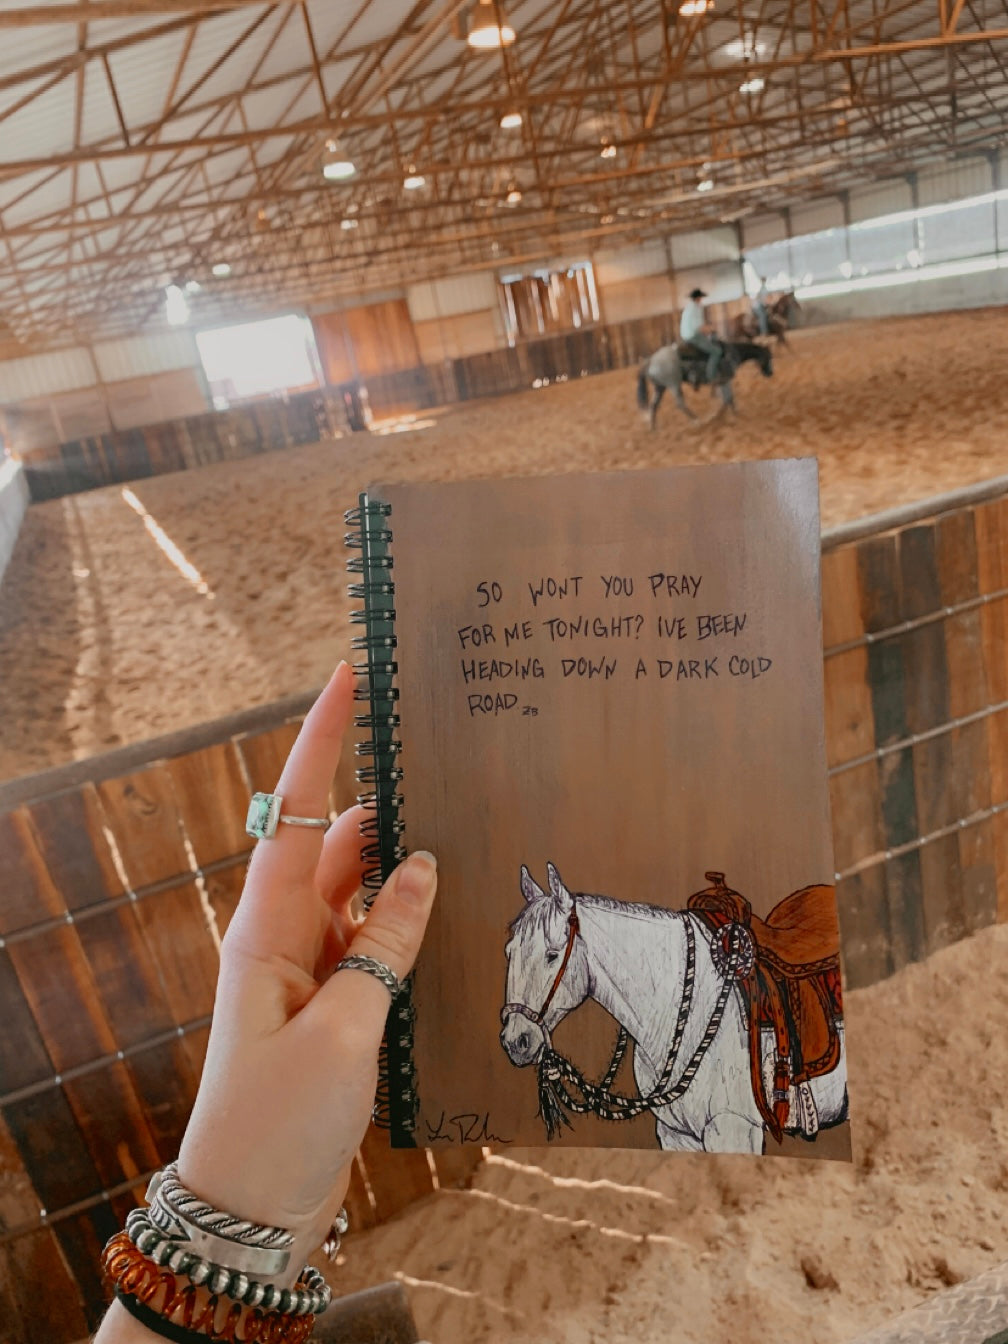 SO WONT YOU PRAY
FOR ME TONIGHT? IVE BEEN
HEADING DOWN A DARK COLD
ROAD. ZB